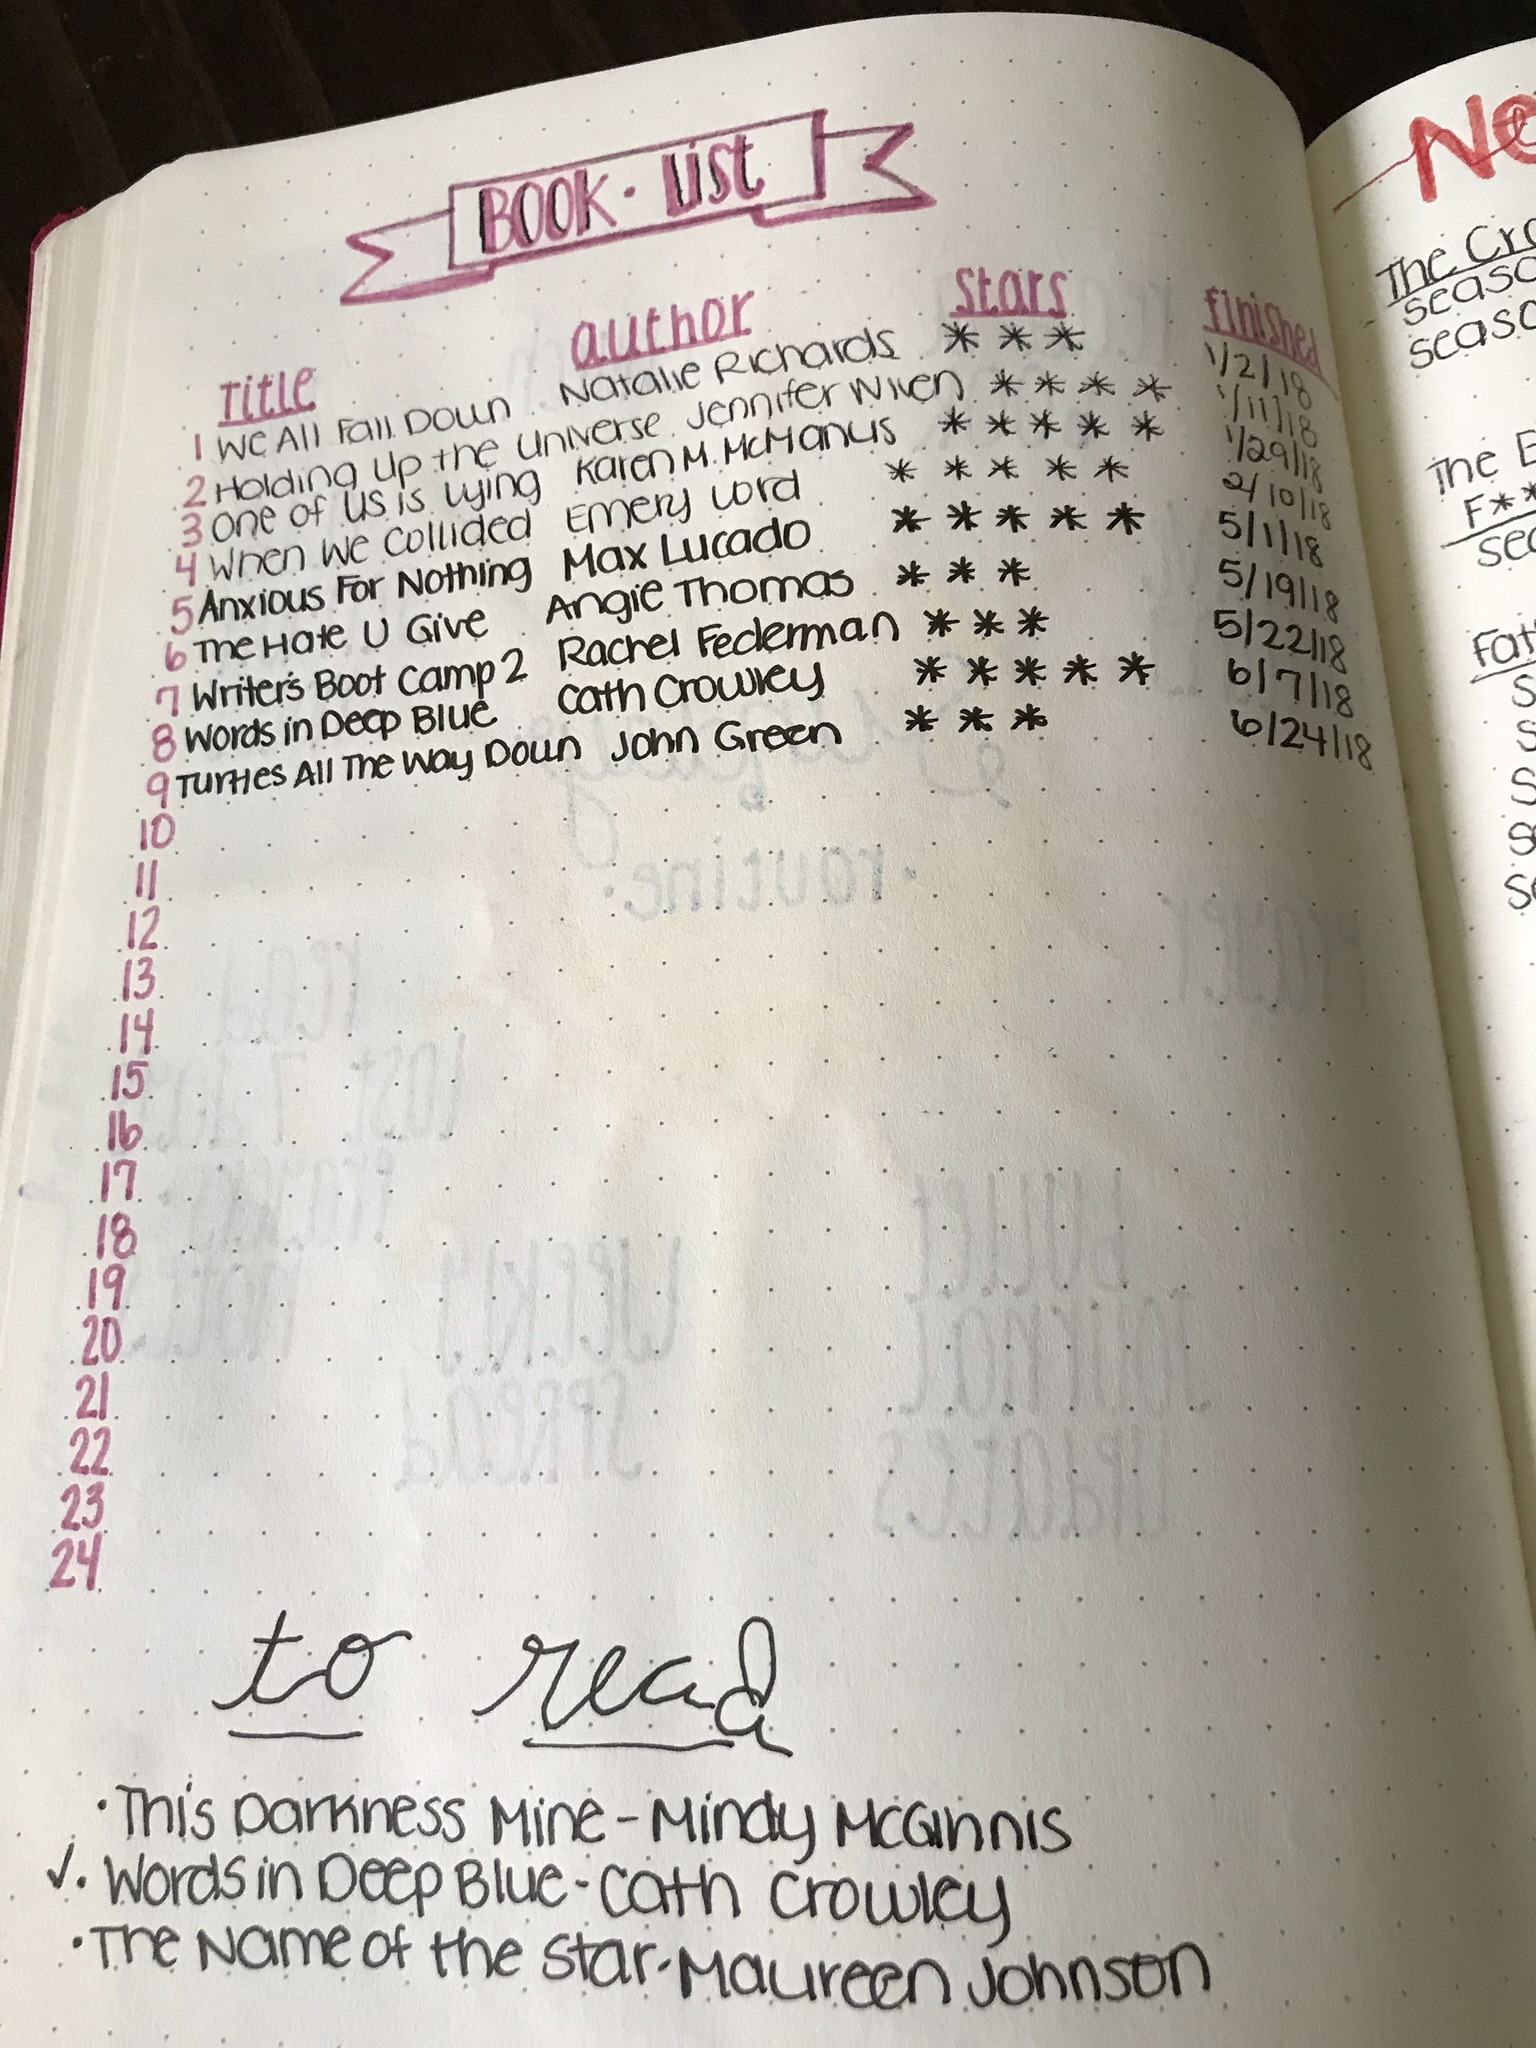 BOOK · LIST
Title author stars finished
1 We All Fall Down Natalie Richards * * * 1/2/18
2 Holding Up the Universe Jennifer Niven * * * * 1/11/18
3 One of Us is Lying Karen M. McManus * * * * * 1/29/18
4 When We Collided Emery Lord * * * * * 2/10/18
5 Anxious For Nothing Max Lucado * * * * * 5/1/18
6 The Hate U Give Angie Thomas * * * 5/19/18
7 Writer's Boot Camp 2 Rachel Federman * * * 5/22/18
8 Words in Deep Blue Cath Crowley * * * * * 6/7/18
9 Turtles All The Way Down John Green * * * 6/24/18
10
11
12
13
14
15
16
17
18
19
20
21
22
23
24
to read
· This Darkness Mine - Mindy McGinnis
✓ · Words in Deep Blue - Cath Crowley
· The Name of the Star - Maureen Johnson
The
The